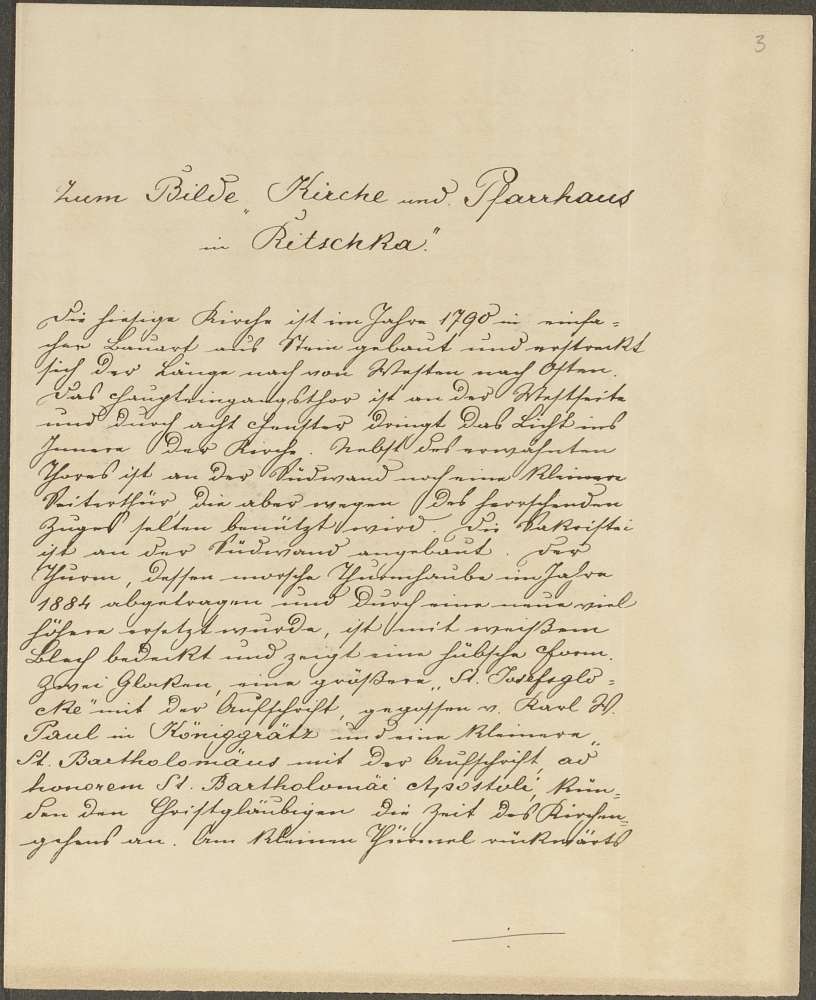 3
Zum Bilde „Kirche und Pfarrhaus
in Ritschka."
Die hiesige Kirche ist im Jahre 1790 in einfa=
cher Bauart aus Stein gebaut und erstreckt
sich der Länge nach von Westen nach Osten.
Das Haupteingangsthor ist an der Westseite
und durch acht Fenster dringt das Licht ins
Innere der Kirche. Nebst des erwähnten
Thores ist an der Südwand noch eine kleinere
Seitenthür, die aber wegen des herrschenden
Zuges selten benützt wird. Die Sakristei
ist an der Südwand angebaut. Der
Thurm, dessen morsche Thurmhaube im Jahre
1884 abgetragen und durch eine neue viel
höhere ersetzt wurde, ist mit weißem
Blech bedeckt und zeigt eine hübsche Form.
Zwei Glocken, eine größere „St. Josefsglo=
cke" mit der Aufschrift, gegossen v. Karl W.
Paul in Königgrätz und eine kleinere
St. Bartholomäus mit der Aufschrift „ad
honorem St. Bartholomäi Apostoli", kün=
den den Christgläubigen die Zeit des Kirchen=
gehens an. Am kleinen Thürmel rückwärts